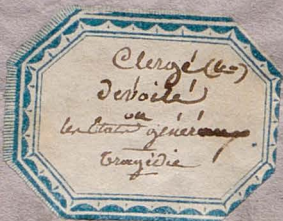 Clergé (le)
dévoilé
ou
les Etats généraux
tragédie